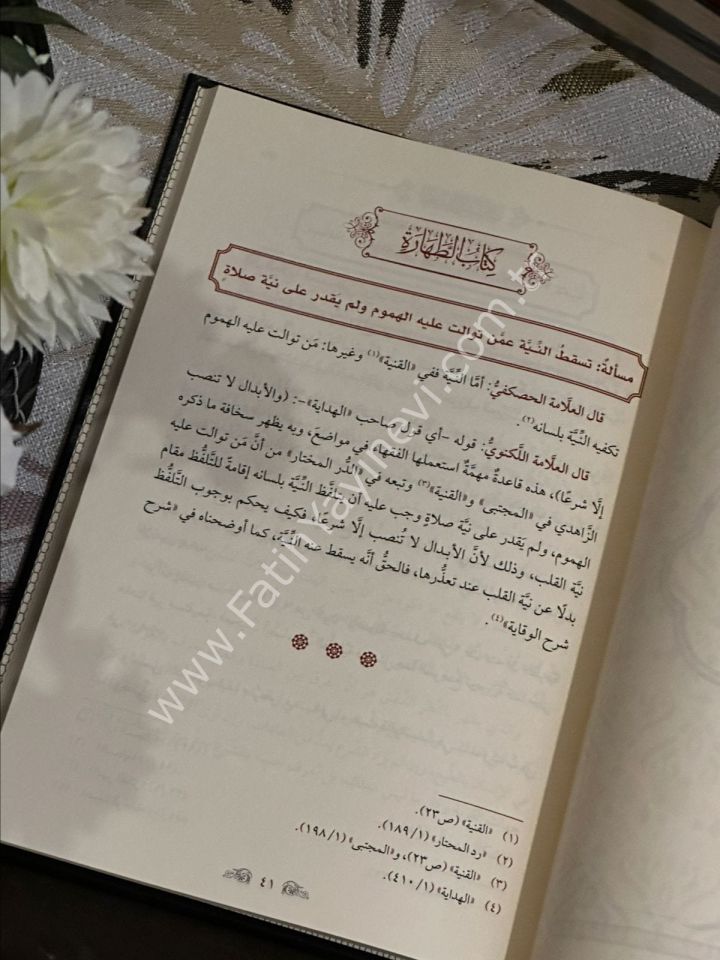 كِتَابُ الطَّهَارَةِ
مسألةٌ: تسقطُ النِّيَّة عمَّن توالت عليه الهموم ولم يَقدر على نيَّة صلاةٍ
قال العلَّامة الحصكفيُّ: أمَّا النِّيَّة ففي «القنية»(١) وغيرها: مَن توالت عليه الهموم
تكفيه النِّيَّة بلسانه(٢).
قال العلَّامة اللَّكنويُّ: قوله -أي قول صاحب «الهداية»-: (والأبدال لا تنصب
إلَّا شرعًا)، هذه قاعدةٌ مهمَّةٌ استعملها الفقهاء في مواضعَ، وبه يظهر سخافة ما ذكره
الزَّاهدي في «المجتبى» و«القنية»(٣) وتبعه في «الدُّر المختار» من أنَّ مَن توالت عليه
الهموم، ولم يَقدر على نيَّة صلاةٍ وجب عليه أن يتلفَّظ النِّيَّة بلسانه إقامةً للتَّلفُّظ مقام
نيَّة القلب، وذلك لأنَّ الأبدال لا تُنصب إلَّا شرعًا، فكيف يحكم بوجوب التَّلفُّظ
بدلًا عن نيَّة القلب عند تعذُّرها، فالحقُّ أنَّه يسقط عنه النِّيَّة، كما أوضحناه في «شرح
شرح الوقاية»(٤).
(١) «القنية» (ص٢٣).
(٢) «رد المحتار» (١/ ١٨٩).
(٣) «القنية» (ص٢٣)، و«المجتبى» (١/ ١٩٨).
(٤) «الهداية» (١/ ٤١٠).
٤١
www.FatihYayinevi.com.tr